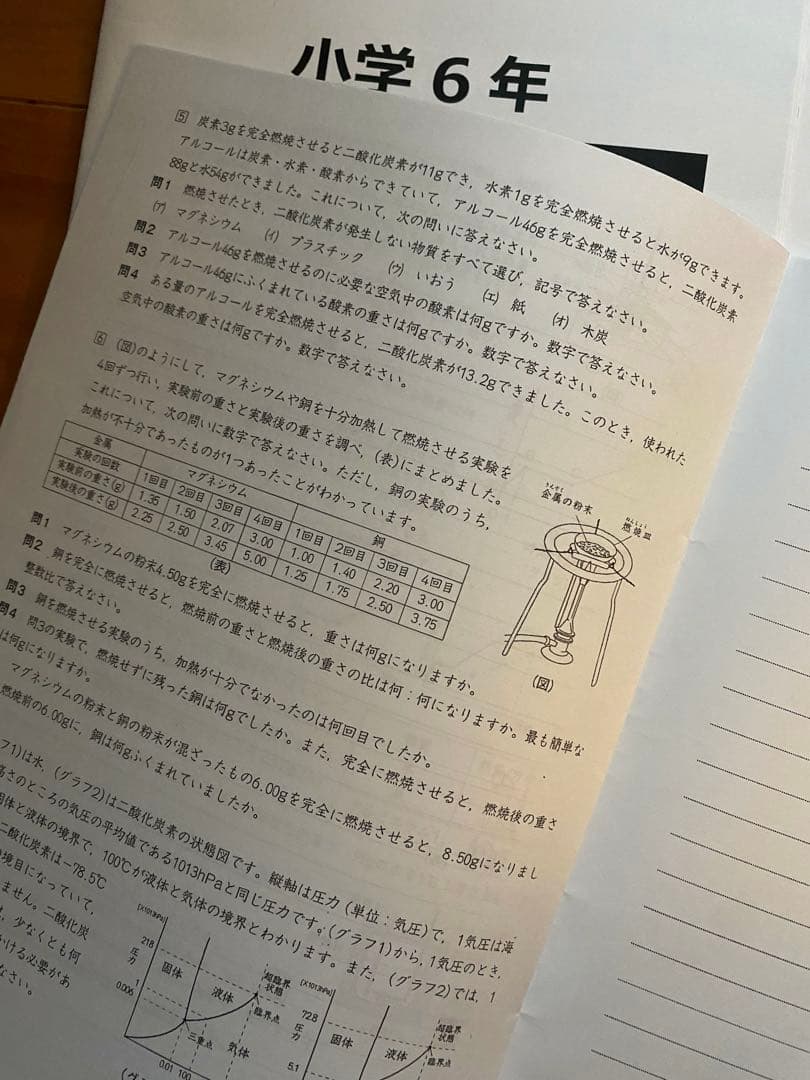 小学6年
5 炭素3gを完全燃焼させると二酸化炭素が11gでき，水素1gを完全燃焼させると水が9gできます。
アルコールは炭素・水素・酸素からできていて，アルコール46gを完全燃焼させると，二酸化炭素
88gと水54gができました。これについて，次の問いに答えなさい。
問1 燃焼させたとき，二酸化炭素が発生しない物質をすべて選び，記号で答えなさい。
(ア) マグネシウム (イ) プラスチック (ウ) いおう (エ) 紙 (オ) 木炭
問2 アルコール46gを燃焼させるのに必要な空気中の酸素は何gですか。数字で答えなさい。
問3 アルコール46gにふくまれている酸素の重さは何gですか。数字で答えなさい。
問4 ある量のアルコールを完全燃焼させると，二酸化炭素が13.2gできました。このとき，使われた
空気中の酸素の重さは何gですか。数字で答えなさい。
6 (図)のようにして，マグネシウムや銅を十分加熱して燃焼させる実験を
4回ずつ行い，実験前の重さと実験後の重さを調べ，(表)にまとめました。
これについて，次の問いに数字で答えなさい。ただし，銅の実験のうち，
加熱が不十分であったものが1つあったことがわかっています。
金属 マグネシウム 銅
実験の回数 1回目 2回目 3回目 4回目 1回目 2回目 3回目 4回目
実験前の重さ(g) 1.35 1.50 2.07 3.00 1.00 1.40 2.20 3.00
実験後の重さ(g) 2.25 2.50 3.45 5.00 1.25 1.75 2.50 3.75
(表)
きんぞく
金属の粉末
ねんしょう
燃焼皿
(図)
問1 マグネシウムの粉末4.50gを完全に燃焼させると，重さは何gになりますか。
問2 銅を完全に燃焼させると，燃焼前の重さと燃焼後の重さの比は何：何になりますか。最も簡単な
整数比で答えなさい。
問3 銅を燃焼させる実験のうち，加熱が十分でなかったのは何回目でしたか。
問4 問3の実験で，燃焼せずに残った銅は何gでしたか。また，完全に燃焼させると，燃焼後の重さ
は何gになりますか。
マグネシウムの粉末と銅の粉末が混ざったもの6.00gを完全に燃焼させると，8.50gになりまし
燃焼前の6.00gに，銅は何gふくまれていましたか。
フ1)は水，(グラフ2)は二酸化炭素の状態図です。縦軸は圧力（単位：気圧）で，1気圧は海
高さのところの気圧の平均値である1013hPaと同じ圧力です。(グラフ1)から，1気圧のとき，
固体と液体の境界で，100℃が液体と気体の境界とわかります。また，(グラフ2)では，1
二酸化炭素は−78.5℃
境目になっていて，
ません。二酸化炭
，少なくとも何
かける必要があ
なさい。
[×1013hPa]
218
圧力
1
0.006
固体
液体
気体
超臨界状態
臨界点
三重点
0.01 100
[×1013hPa]
72.8
圧力
5.1
固体
液体
超臨界状態
臨界点